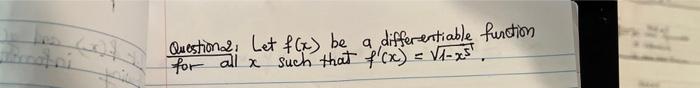 Question 2: Let f(x) be a differentiable function
for all x such that f'(x) = √1-x⁵ .